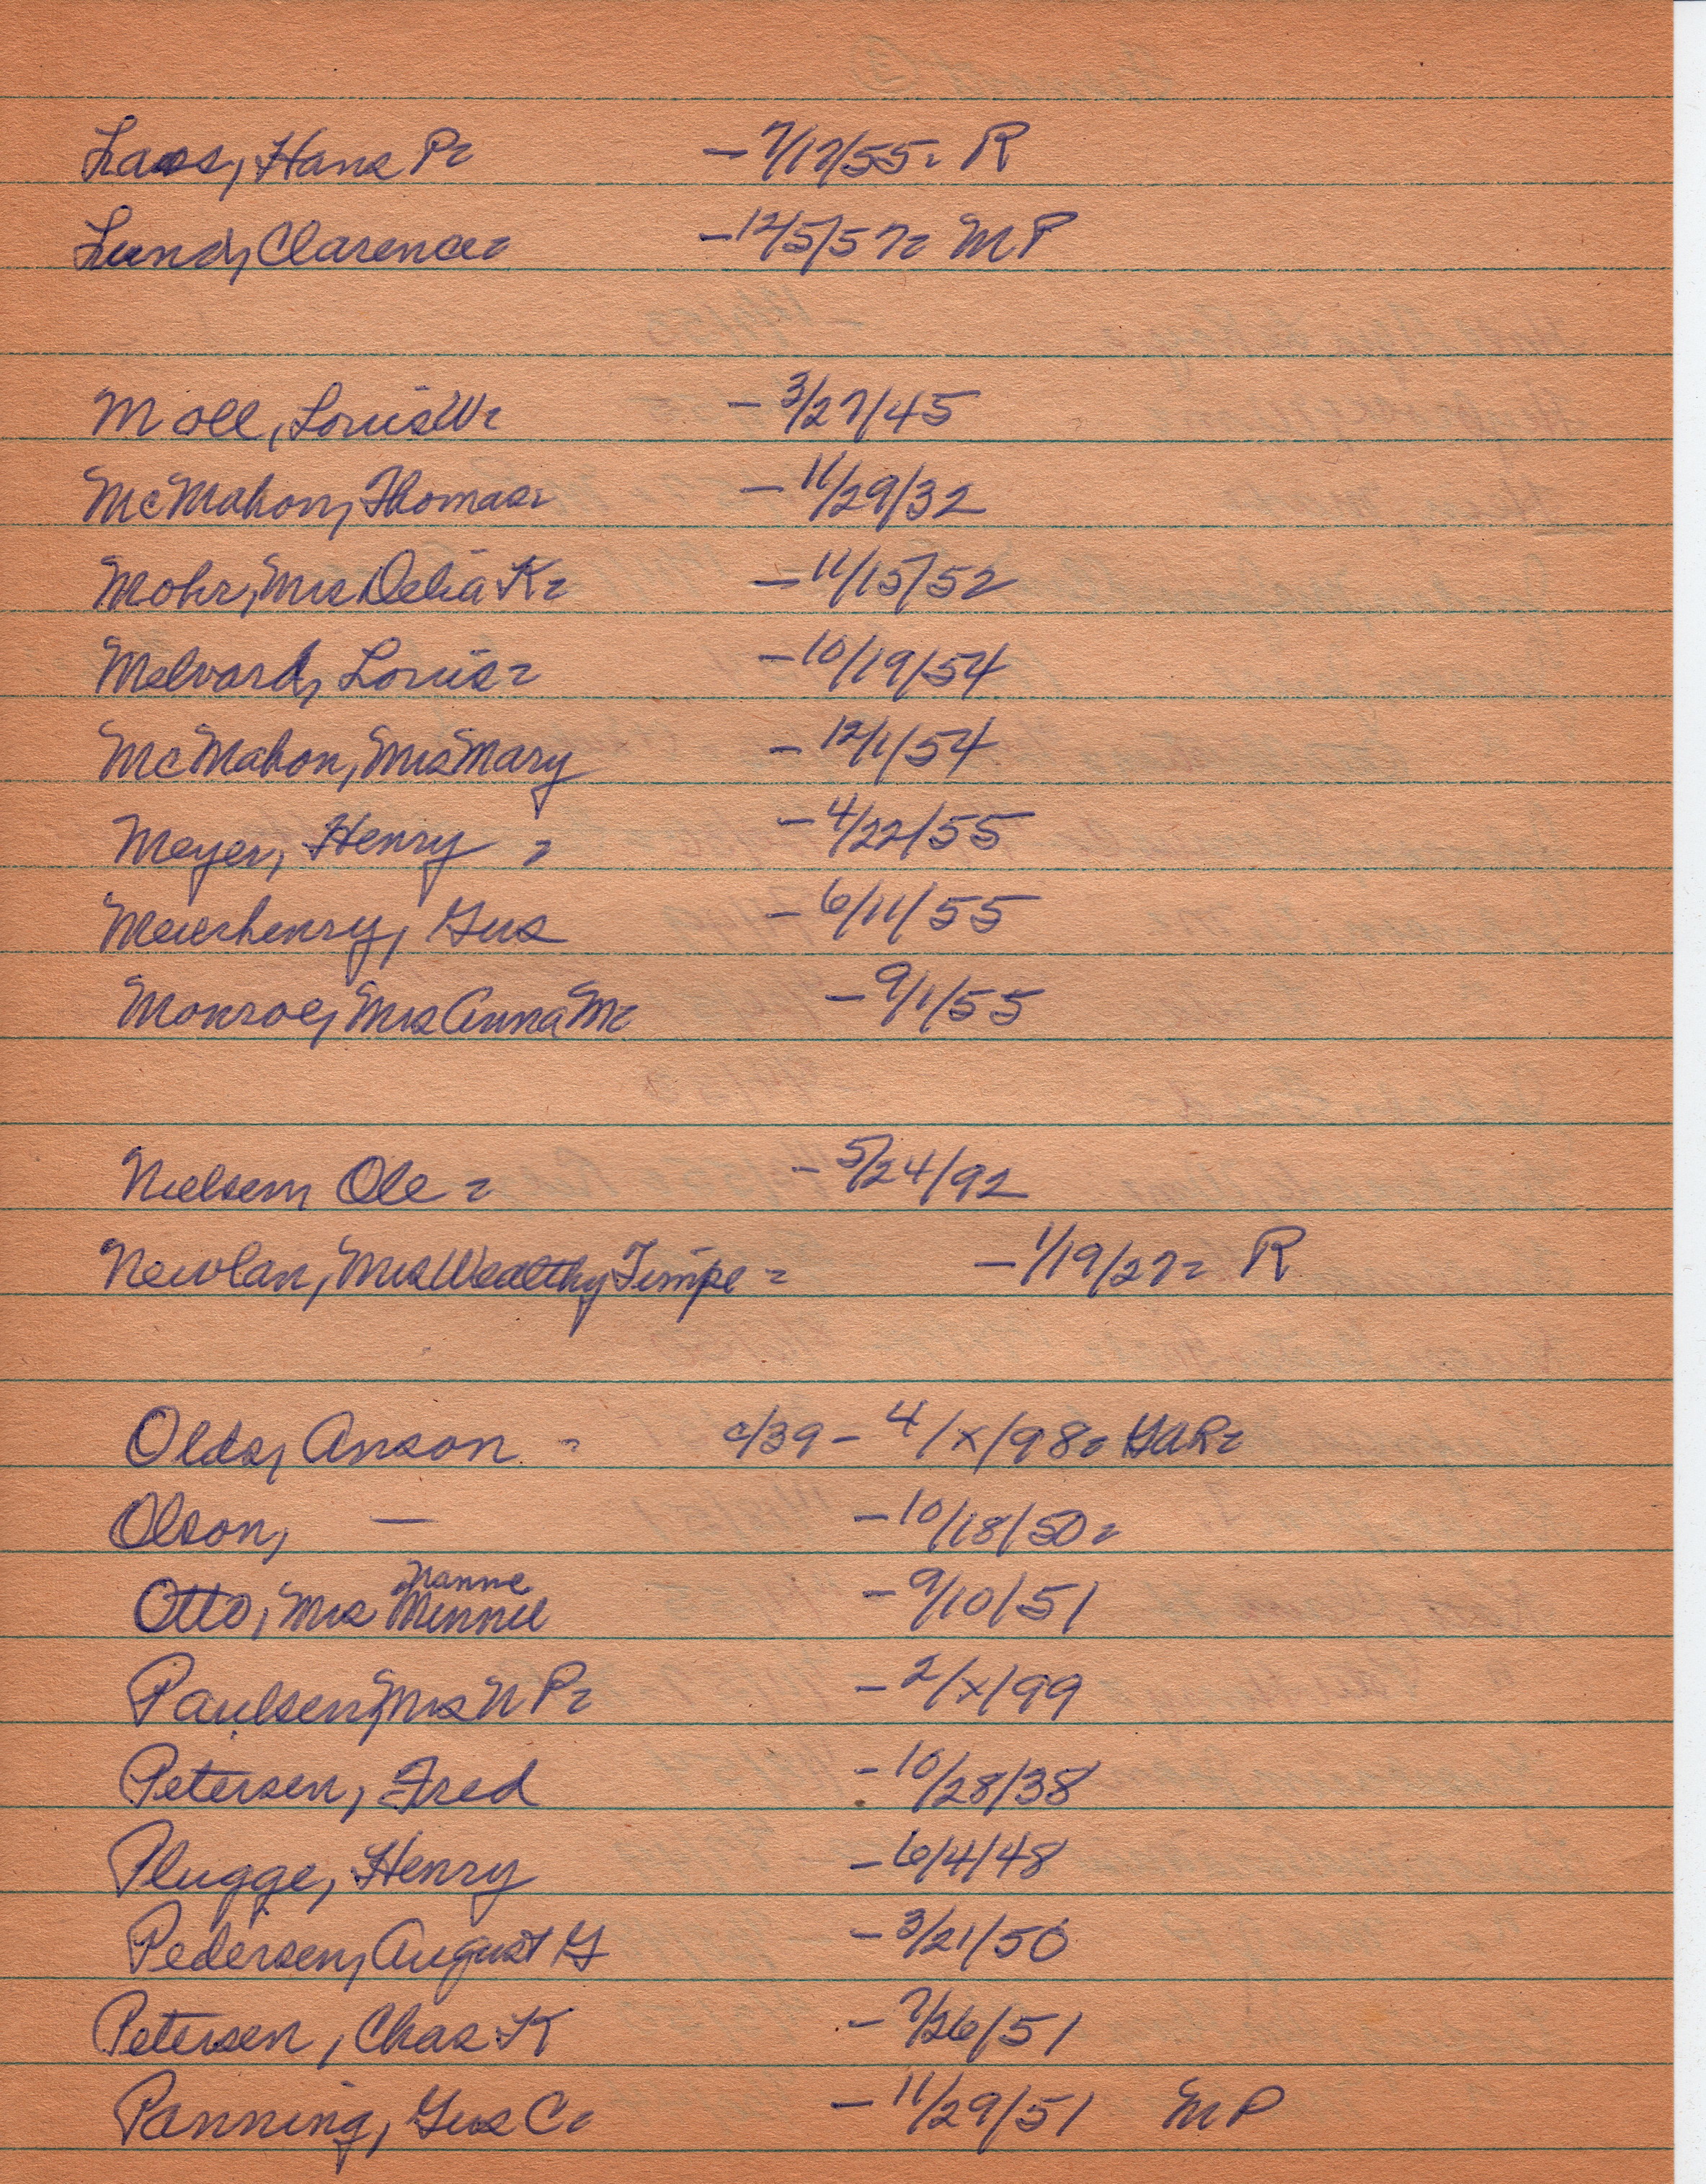 Laas, Hans P. - 7/17/55. R
Lund, Clarence. - 12/5/57. MP
Moll, Louis W. - 3/27/45
McMahon, Thomas. - 11/29/32
Mohr, Mrs Delia K. - 11/15/52
Melvard, Louis. - 10/19/54
McMahon, Mrs Mary - 12/1/54
Meyer, Henry. - 4/22/55
Meierhenry, Gus - 6/11/55
Monroe, Mrs Anna M. - 9/1/55
Nielsen, Ole. - 5/24/92
Newlan, Mrs Wealthy Timpe. - 1/19/27. R
Olds, Anson. c/39 - 4/x/98. GAR.
Olson, — - 10/18/50.
Nanne
Otto, Mrs Minnie - 9/10/51
Paulsen, Mrs N P. - 2/x/99
Petersen, Fred - 10/28/38
Plugge, Henry - 6/4/48
Pedersen, August G - 3/21/50
Petersen, Chas K - 7/26/51
Panning, Gus C. - 11/29/51 MP